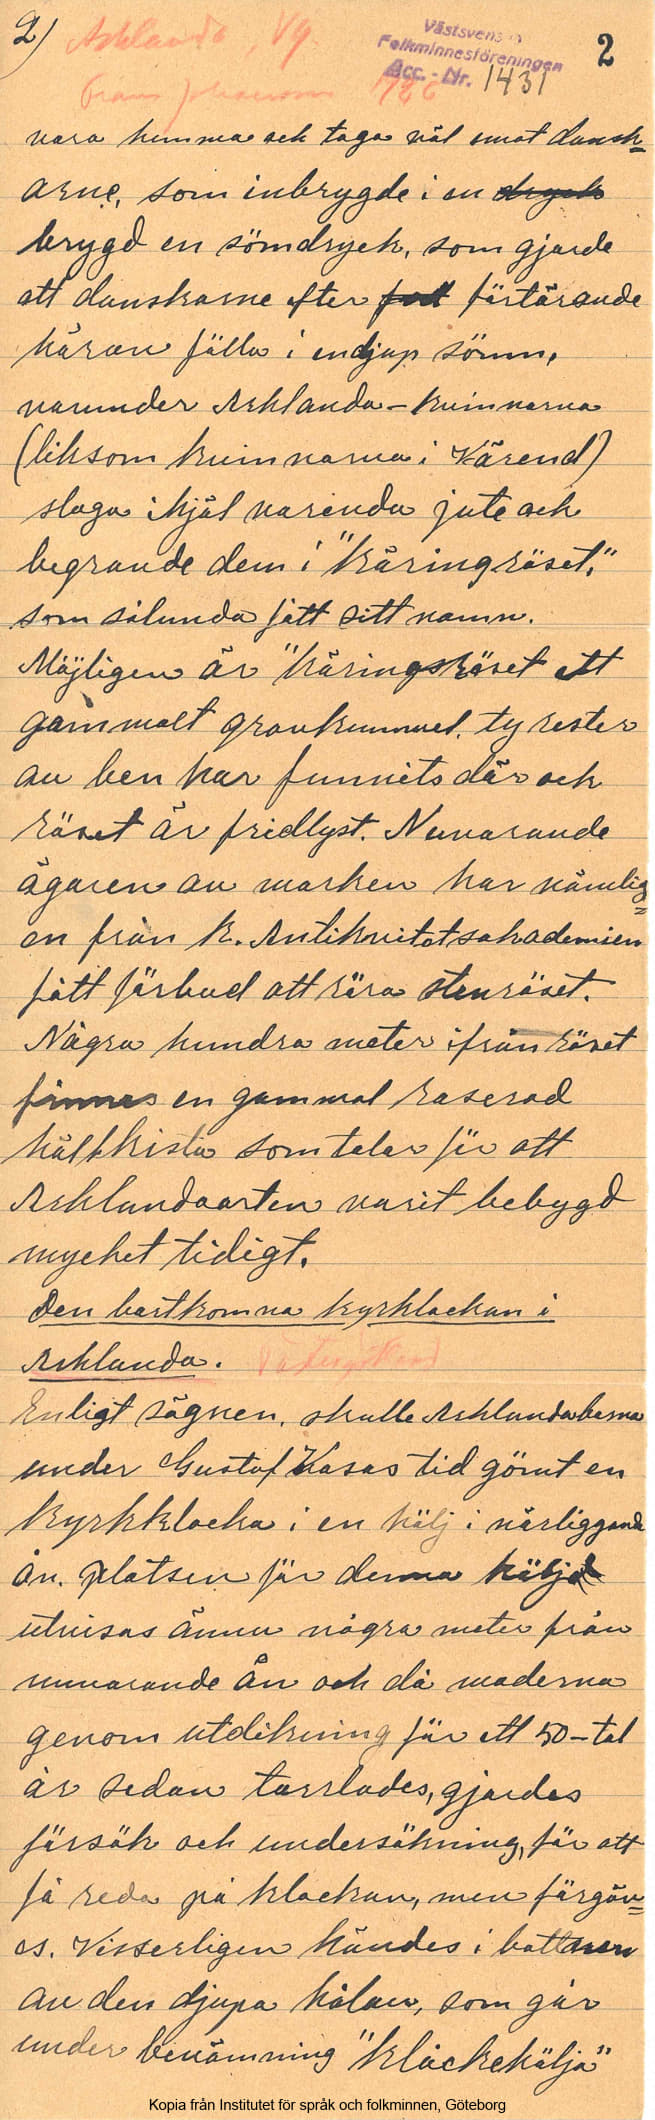 2) Asklanda, Vg. Västsvenska 2
Folkminnesföreningen
Frans Johansson 1926 Acc.-Nr. 1431
vara hemma och taga väl emot dansk=
arne, som inbrygde i en dryck
brygd en sömdryck, som gjorde
att danskarne efter förtärande
härav fälla i en djup sömn,
varunder Asklanda-kvinnorna
(liksom kvinnorna i Värend)
sloga ihjäl varenda jute och
begravde dem i "kåringröset,"
som sålunda fått sitt namn.
Möjligen är "kåringsröset ett
gammalt gravkummel, ty rester
av ben har funnits där och
röset är fridlyst. Nuvarande
ägaren av marken har nämlig=
en från K. Antikvitetsakademien
fått förbud att röra stenröset.
Några hundra meter ifrån röset
finnes en gammal raserad
hällkista som talar för att
Asklandaorten varit bebygd
mycket tidigt.
Den bortkomna kyrklockan i
Asklanda.
Enligt sägnen, skulle Asklandaborna
under Gustaf Vasas tid gömt en
kyrkklocka i en hölj i närliggande
ån. platsen för denna hölja
utvisas ännu några meter från
nuvarande ån och då maderna
genom utdikning för ett 50-tal
år sedan torrlades, gjordes
försök och undersökning, för att
få reda på klockan, men förgäv=
es. Visserligen kändes i bottnen
av den djupa hålan, som går
under benämning "klockehölja"
Kopia från Institutet för språk och folkminnen, Göteborg